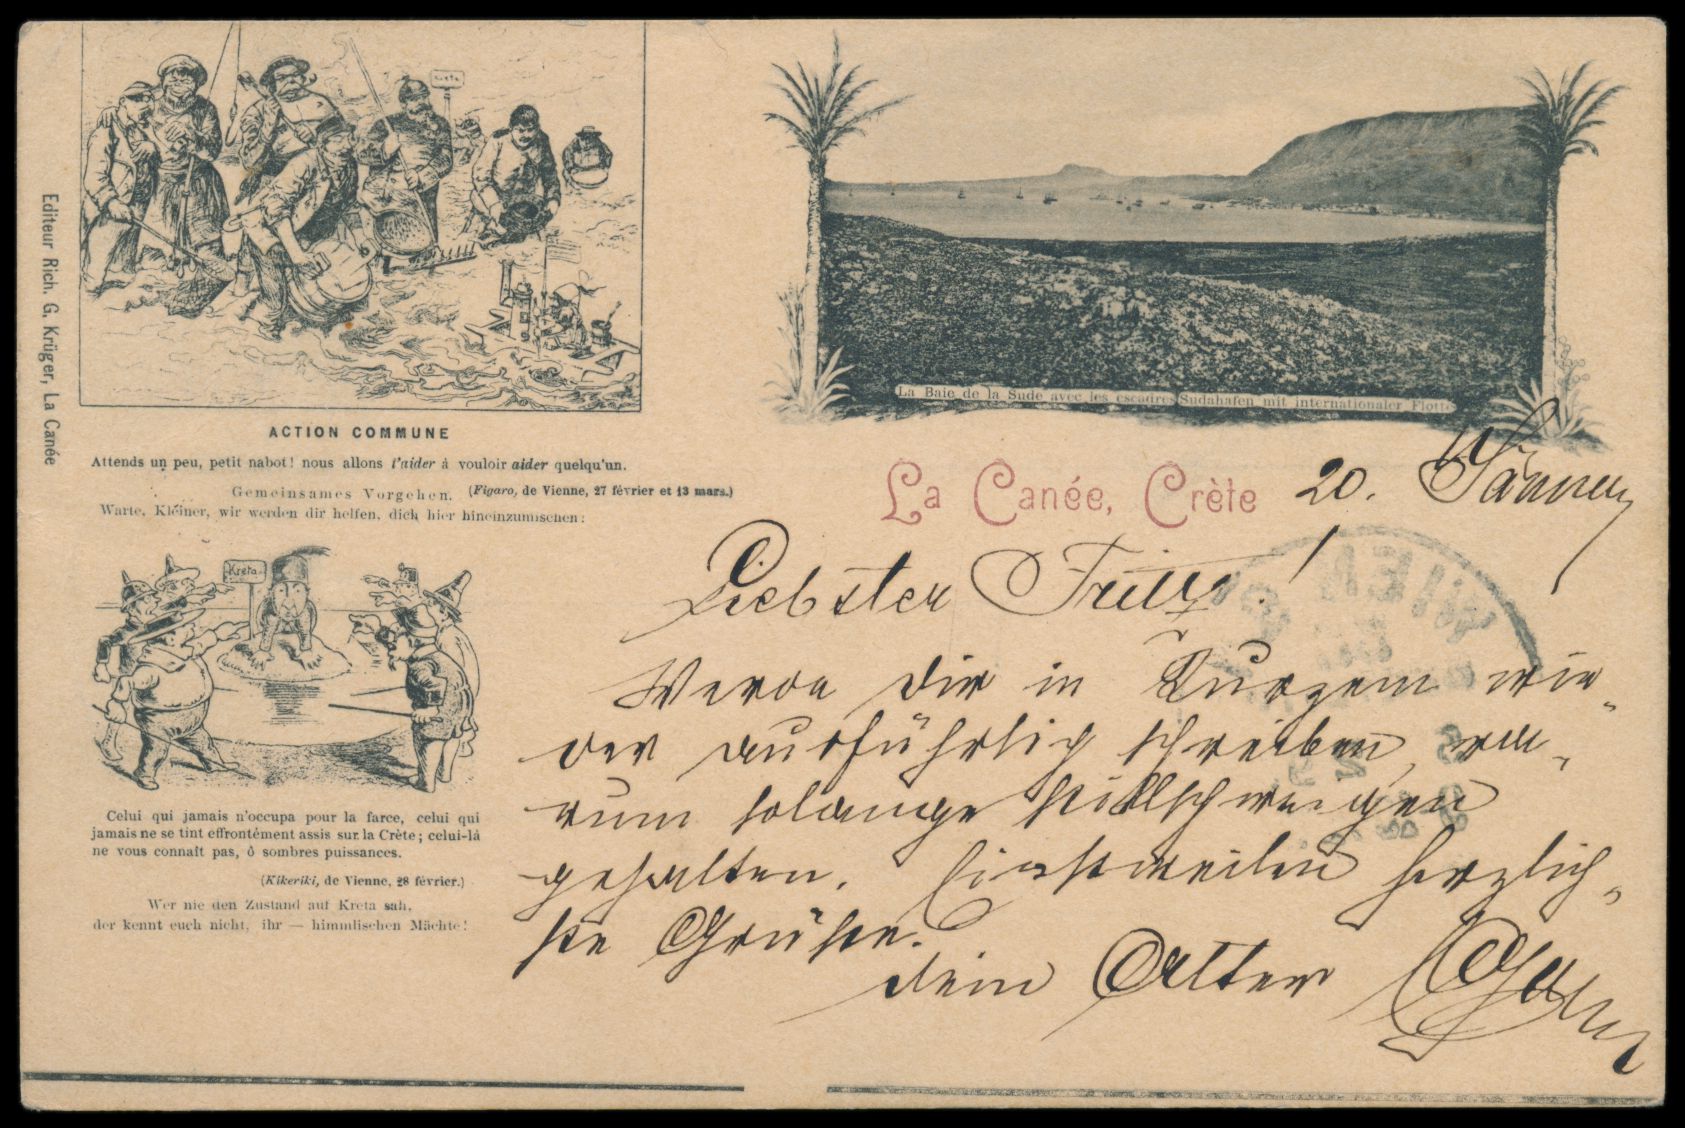 Editeur Rich. G. Krüger, La Canée
Kreta
ACTION COMMUNE
Attends un peu, petit nabot! nous allons t'aider à vouloir aider quelqu'un.
(Figaro, de Vienne, 27 février et 13 mars.)
Gemeinsames Vorgehen.
Warte, Kleiner, wir werden dir helfen, dich hier hineinzumischen:
Kreta
Celui qui jamais n'occupa pour la farce, celui qui
jamais ne se tint effrontément assis sur la Crète; celui-là
ne vous connaît pas, ô sombres puissances.
(Kikeriki, de Vienne, 28 février.)
Wer nie den Zustand auf Kreta sah,
der kennt euch nicht, ihr — himmlischen Mächte!
La Baie de la Sude avec les escadres Sudahafen mit internationaler Flotte
La Canée, Crète 20. Jänner
Liebster Fritz!
Werde dir in Kurzem wie-
der ausführlich schreiben, wa-
rum solange stillschweigen
gehalten. Einstweilen herzlich-
ste Grüße.
dein Alter
WIEN